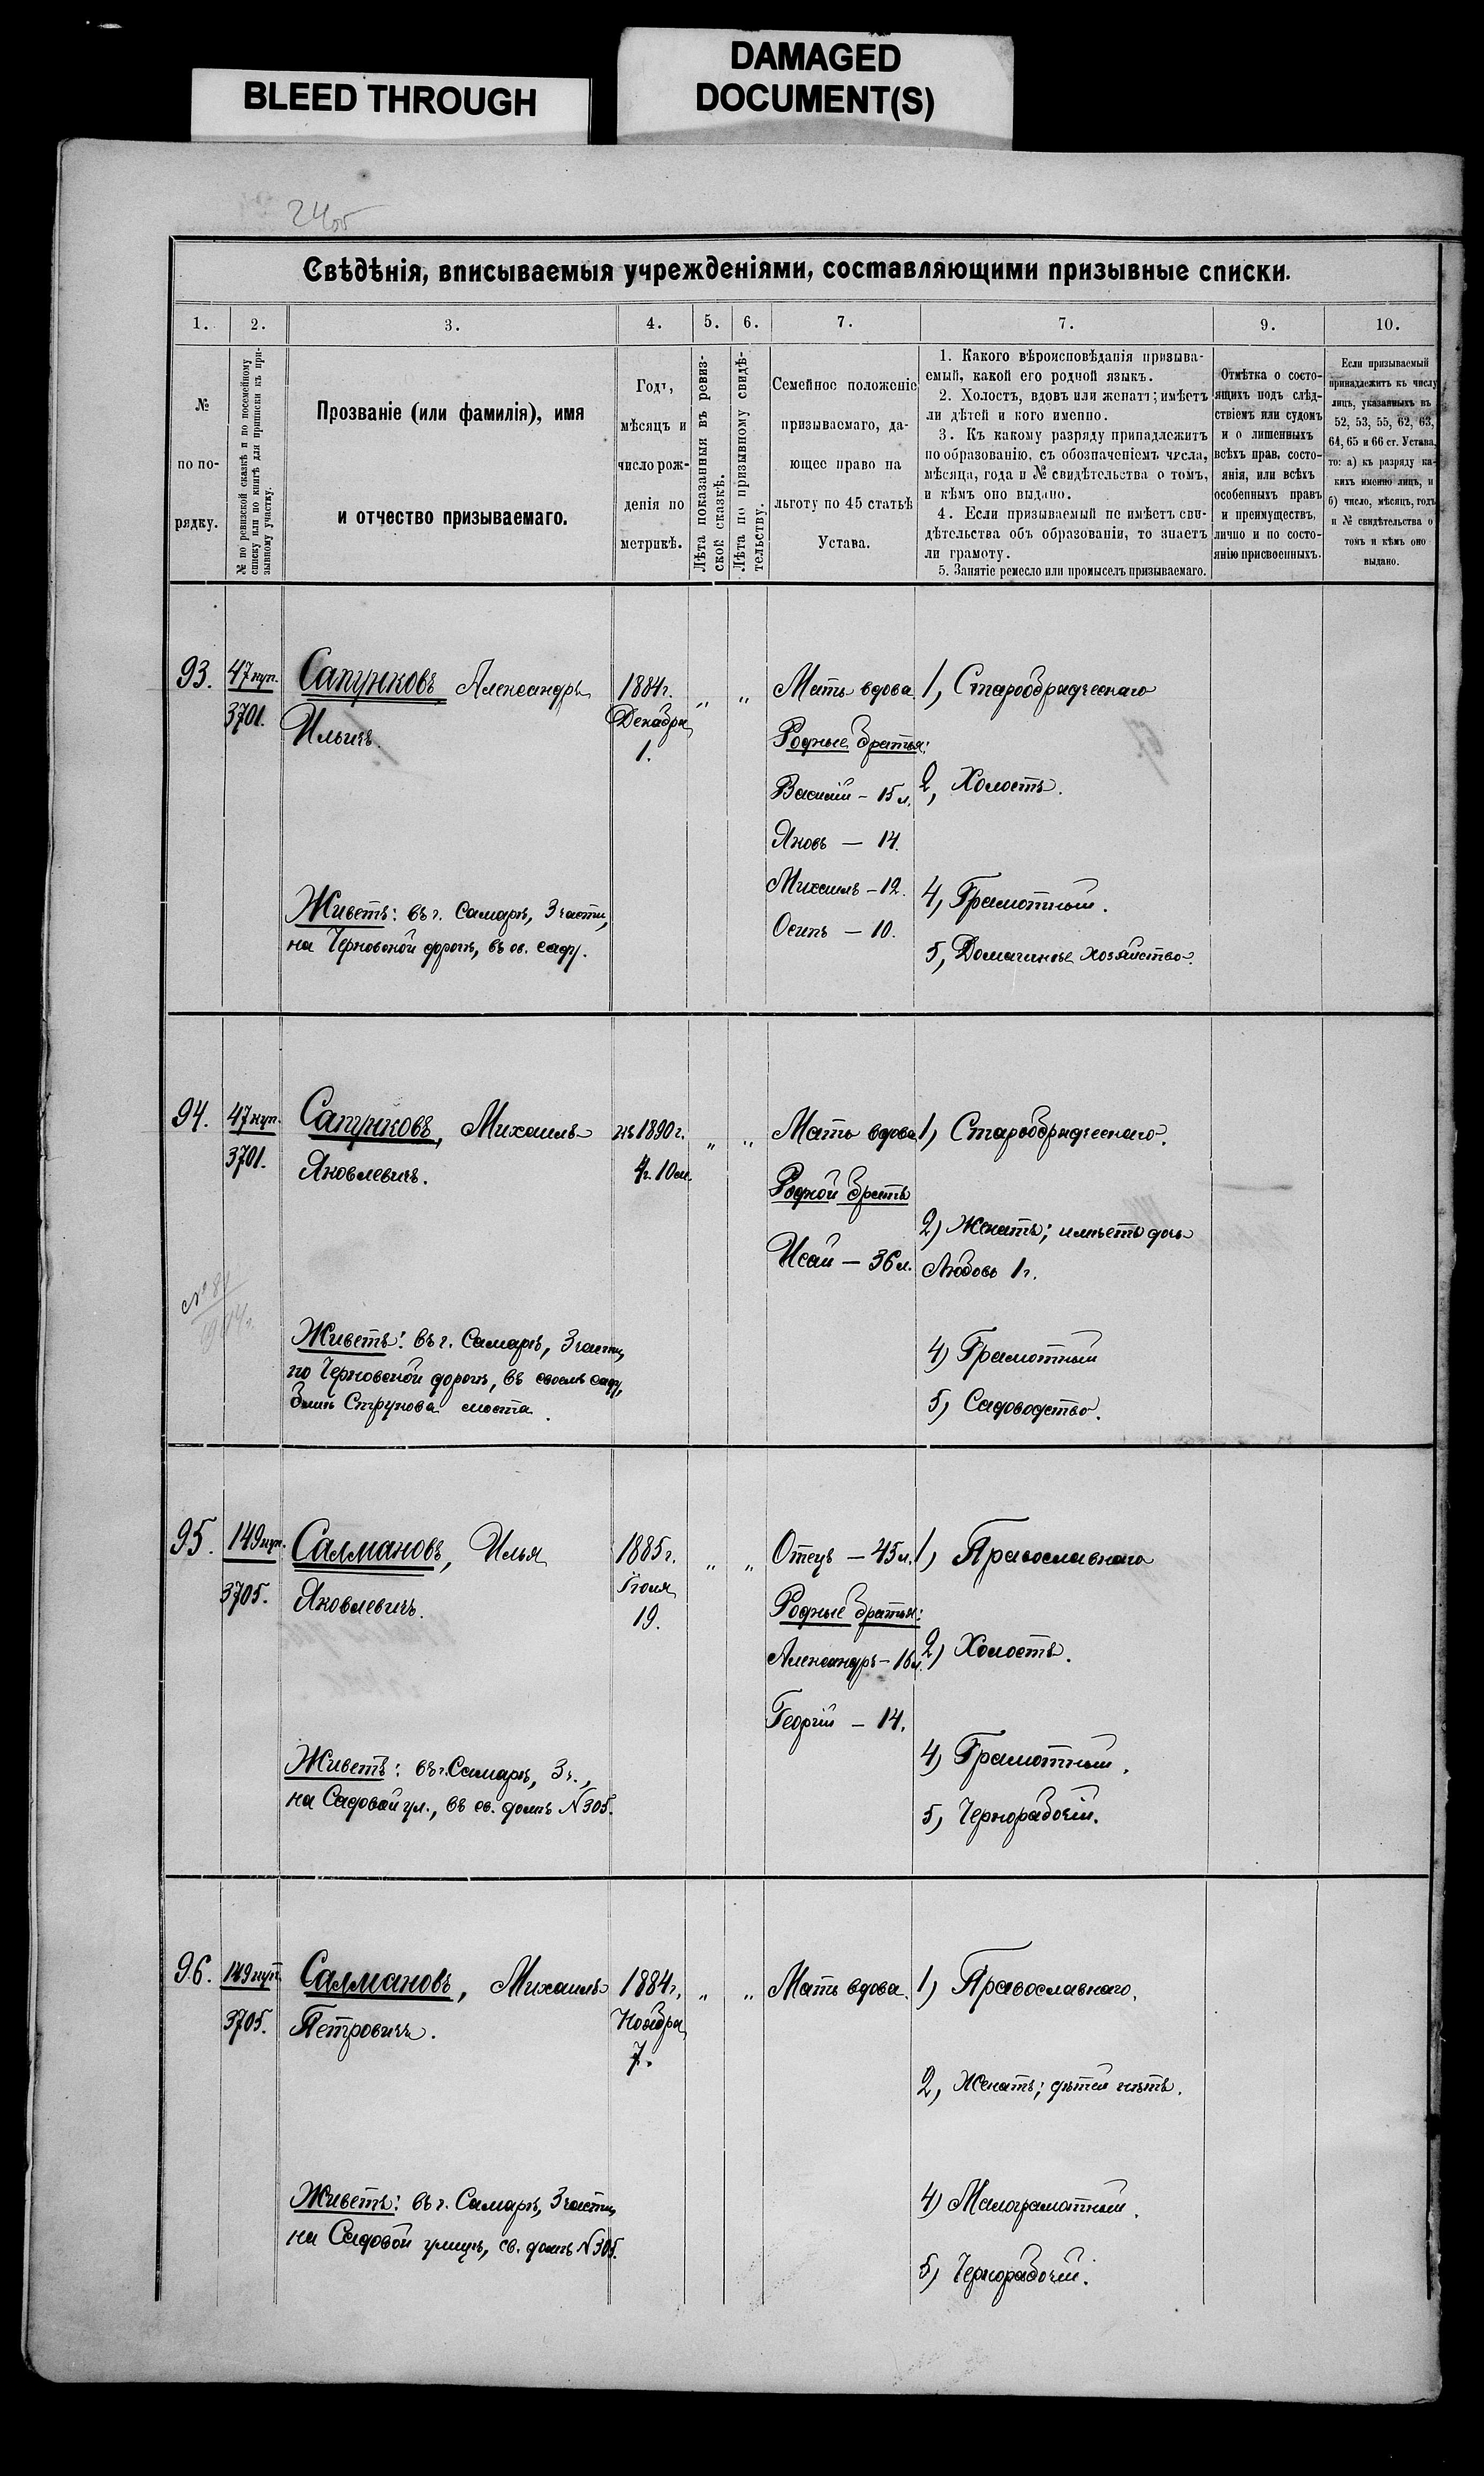 BLEED THROUGH
DAMAGED
DOCUMENT(S)
24об
Свѣдѣнія, вписываемыя учрежденіями, составляющими призывные списки.
1. 2. 3. 4. 5. 6. 7. 7. 9. 10.
№
по по-
рядку.
№ по ревизской сказкѣ и по посемейному
списку или по книгѣ для приписки къ при-
зывному участку.
Прозваніе (или фамилія), имя
и отчество призываемаго.
Годъ,
мѣсяцъ и
число рож-
денія по
метрикѣ.
Лѣта показанныя въ ревиз-
ской сказкѣ.
Лѣта по призывному свидѣ-
тельству.
Семейное положеніе
призываемаго, да-
ющее право на
льготу по 45 статьѣ
Устава.
1. Какого вѣроисповѣданія призыва-
емый, какой его родной языкъ.
2. Холостъ, вдовъ или женатъ; имѣетъ
ли дѣтей и кого именно.
3. Къ какому разряду принадлежитъ
по образованію, съ обозначеніемъ числа,
мѣсяца, года и № свидѣтельства о томъ,
и кѣмъ оно выдано.
4. Если призываемый не имѣетъ сви-
дѣтельства объ образованіи, то знаетъ
ли грамоту.
5. Занятіе ремесло или промыселъ призываемаго.
Отмѣтка о состо-
ящихъ подъ слѣд-
ствіемъ или судомъ
и о лишенныхъ
всѣхъ прав. состо-
янія, или всѣхъ
особенныхъ правъ
и преимуществъ,
лично и по состо-
янію присвоенныхъ.
Если призываемый
принадлежитъ къ числу
лицъ, указанныхъ въ
52, 53, 55, 62, 63,
64, 65 и 66 ст. Устава,
то: а) къ разряду ка-
кихъ именно лицъ, и
б) число, мѣсяцъ, годъ
и № свидѣтельства о
томъ и кѣмъ оно
выдано.
93.
47 куп.
3701.
Сапунковъ Александръ
Ильичъ.
Живетъ: въ г. Самарѣ, 3 части,
на Черновской дорогѣ, въ св. саду.
1884 г.
Декабря
1.
" "
Мать вдова
Родные братья:
Василій – 15 л.
Яковъ – 14.
Михаилъ – 12.
Осипъ – 10.
1, Старообрядческаго
2, Холостъ.
4, Грамотный.
5, Домашнее хозяйство.
94.
47 куп.
3701.
Сапунковъ, Михаилъ
Яковлевичъ.
Живетъ: въ г. Самарѣ, 3 части,
по Черновской дорогѣ, въ своемъ саду,
близъ Струкова моста.
къ 1890 г.
4 г. 10 м.
" "
Мать вдова
Родной братъ
Исай – 36 л.
1) Старообрядческаго.
2) Женатъ; имѣетъ дочь
Любовь 1 г.
4) Грамотный
5) Садоводство.
95.
149 куп.
3705.
Салмановъ, Илья
Яковлевичъ.
Живетъ: въ г. Самарѣ, 3 ч.,
на Садовой ул., въ св. домѣ № 305.
1885 г.
Іюля
19.
" "
Отецъ – 45 л.
Родные братья:
Александръ – 16 л.
Георгій – 14.
1) Православнаго
2) Холостъ.
4) Грамотный.
5) Чернорабочій.
96.
149 куп.
3705.
Салмановъ, Михаилъ
Петровичъ.
Живетъ: въ г. Самарѣ, 3 части,
на Садовой улицѣ, св. домъ № 305.
1884 г.
Ноября
7.
" "
Мать вдова.
1) Православнаго.
2, Женатъ; дѣтей нѣтъ.
4) Малограмотный.
5) Чернорабочій.